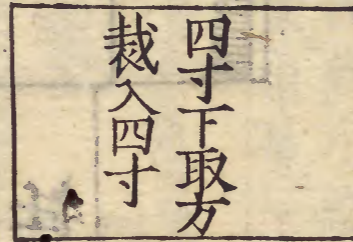 四寸下取方
裁入四寸